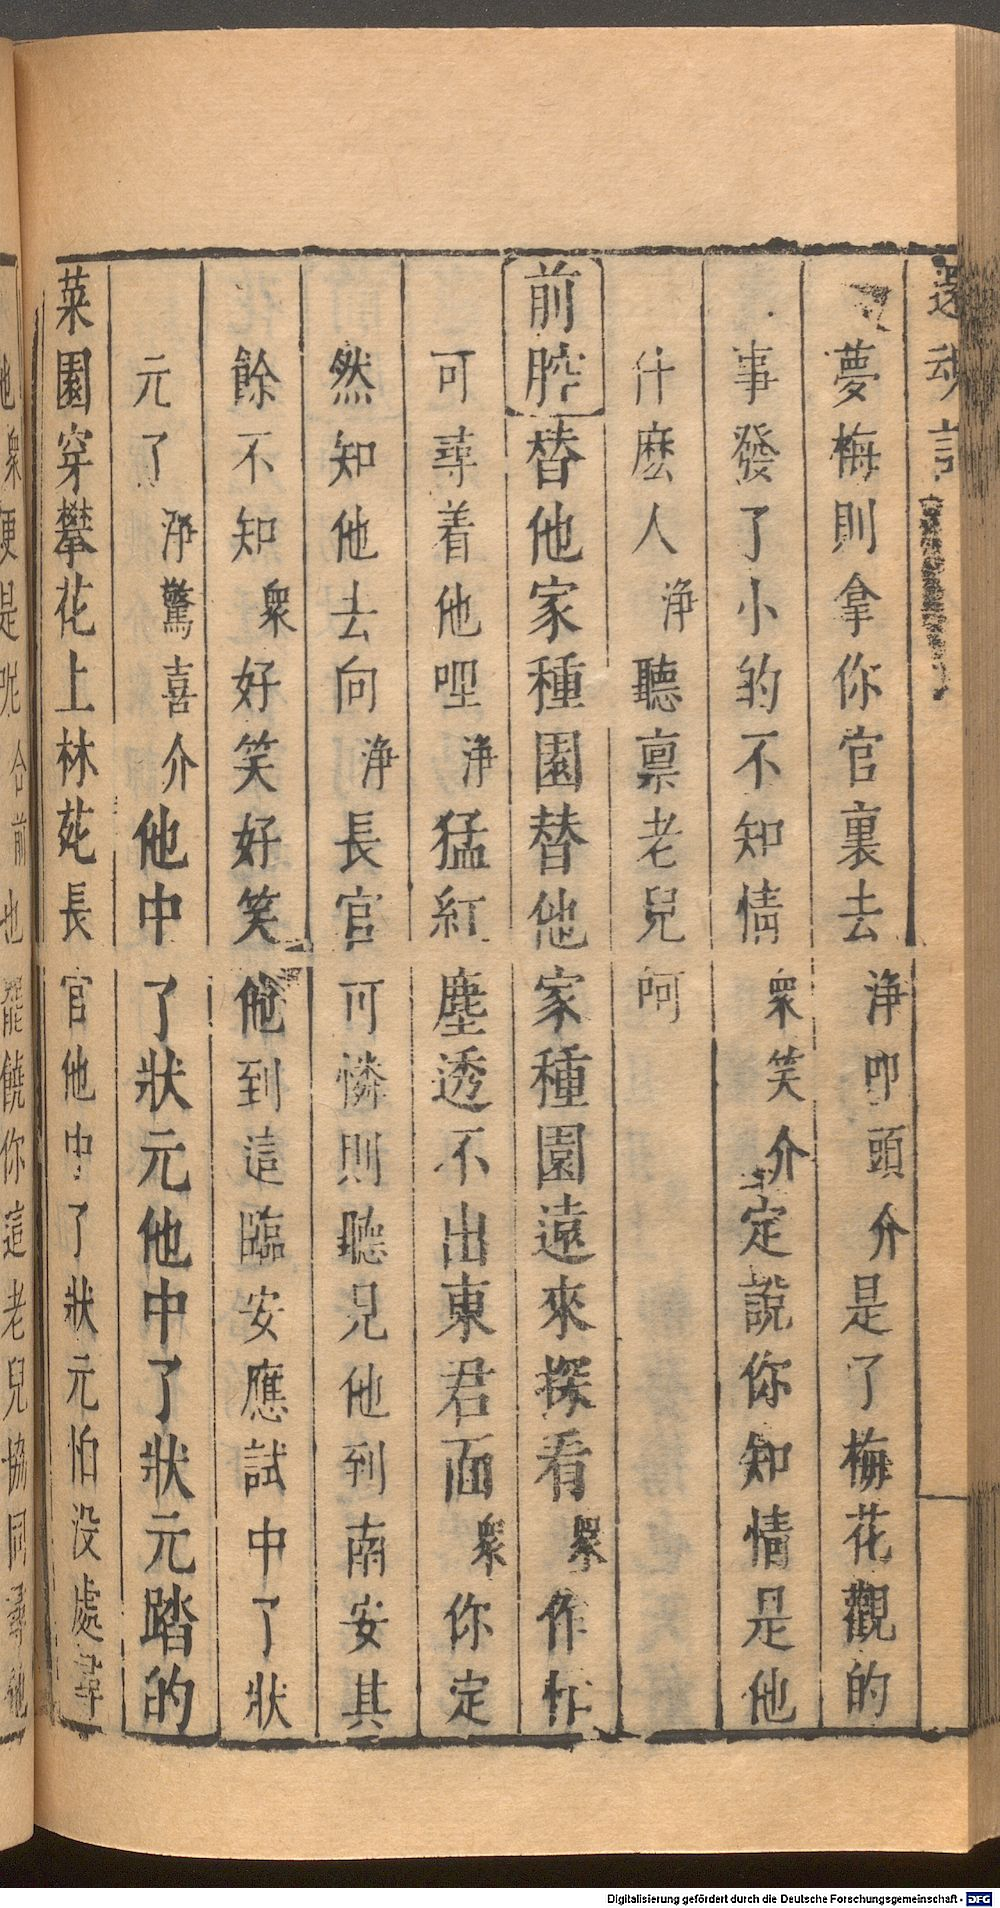 還魂記
夢梅則拿你官裏去淨叩頭介是了梅花觀的
事發了小的不知情衆笑介定說你知情是他
什麽人淨聽稟老兒呵
前腔替他家種園替他家種園遠來探看衆作忙
可尋着他哩淨猛紅塵透不出東君面衆你定
然知他去向淨長官可憐則聽見他到南安其
餘不知衆好笑好笑他到這臨安應試中了狀
元了淨驚喜介他中了狀元他中了狀元踏的
菜園穿攀花上林苑長官他中了狀元怕没處尋
他衆便是呢合前也罷饒你這老兒協同尋他
Digitalisierung gefördert durch die Deutsche Forschungsgemeinschaft - DFG